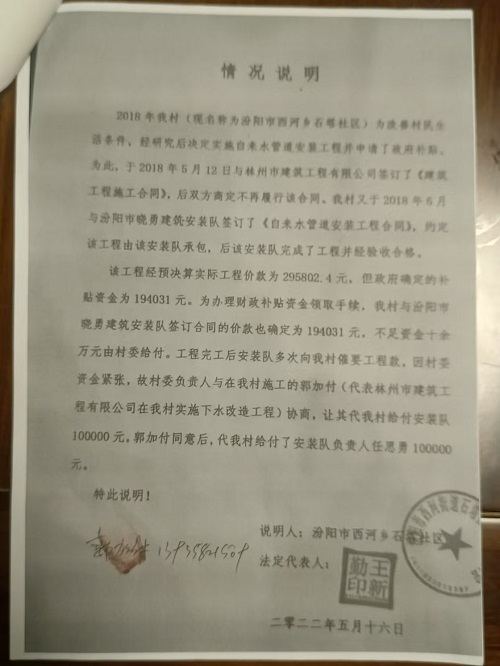 情况说明
2018年我村（现名称为汾阳市西河乡石塔社区）为改善村民生
活条件，经研究后决定实施自来水管道安装工程并申请了政府补贴。
为此，于2018年5月12日与林州市建筑工程有限公司签订了《建筑
工程施工合同》，后双方商定不再履行该合同。我村又于2018年6月
与汾阳市晓勇建筑安装队签订了《自来水管道安装工程合同》，约定
该工程由该安装队承包，后该安装队完成了工程并经验收合格。
该工程经预决算实际工程价款为295802.4元，但政府确定的补
贴资金为194031元。为办理财政补贴资金领取手续，我村与汾阳市
晓勇建筑安装队签订合同的价款也确定为194031元，不足资金十余
万元由村委给付。工程完工后安装队多次向我村催要工程款，因村委
资金紧张，故村委负责人与在我村施工的郭加付（代表林州市建筑工
程有限公司在我村实施下水改造工程）协商，让其代我村给付安装队
100000元。郭加付同意后，代我村给付了安装队负责人任思勇100000
元。
特此说明！
说明人：汾阳市西河乡石塔社区
法定代表人：
王新勤印
二零二二年五月十六日